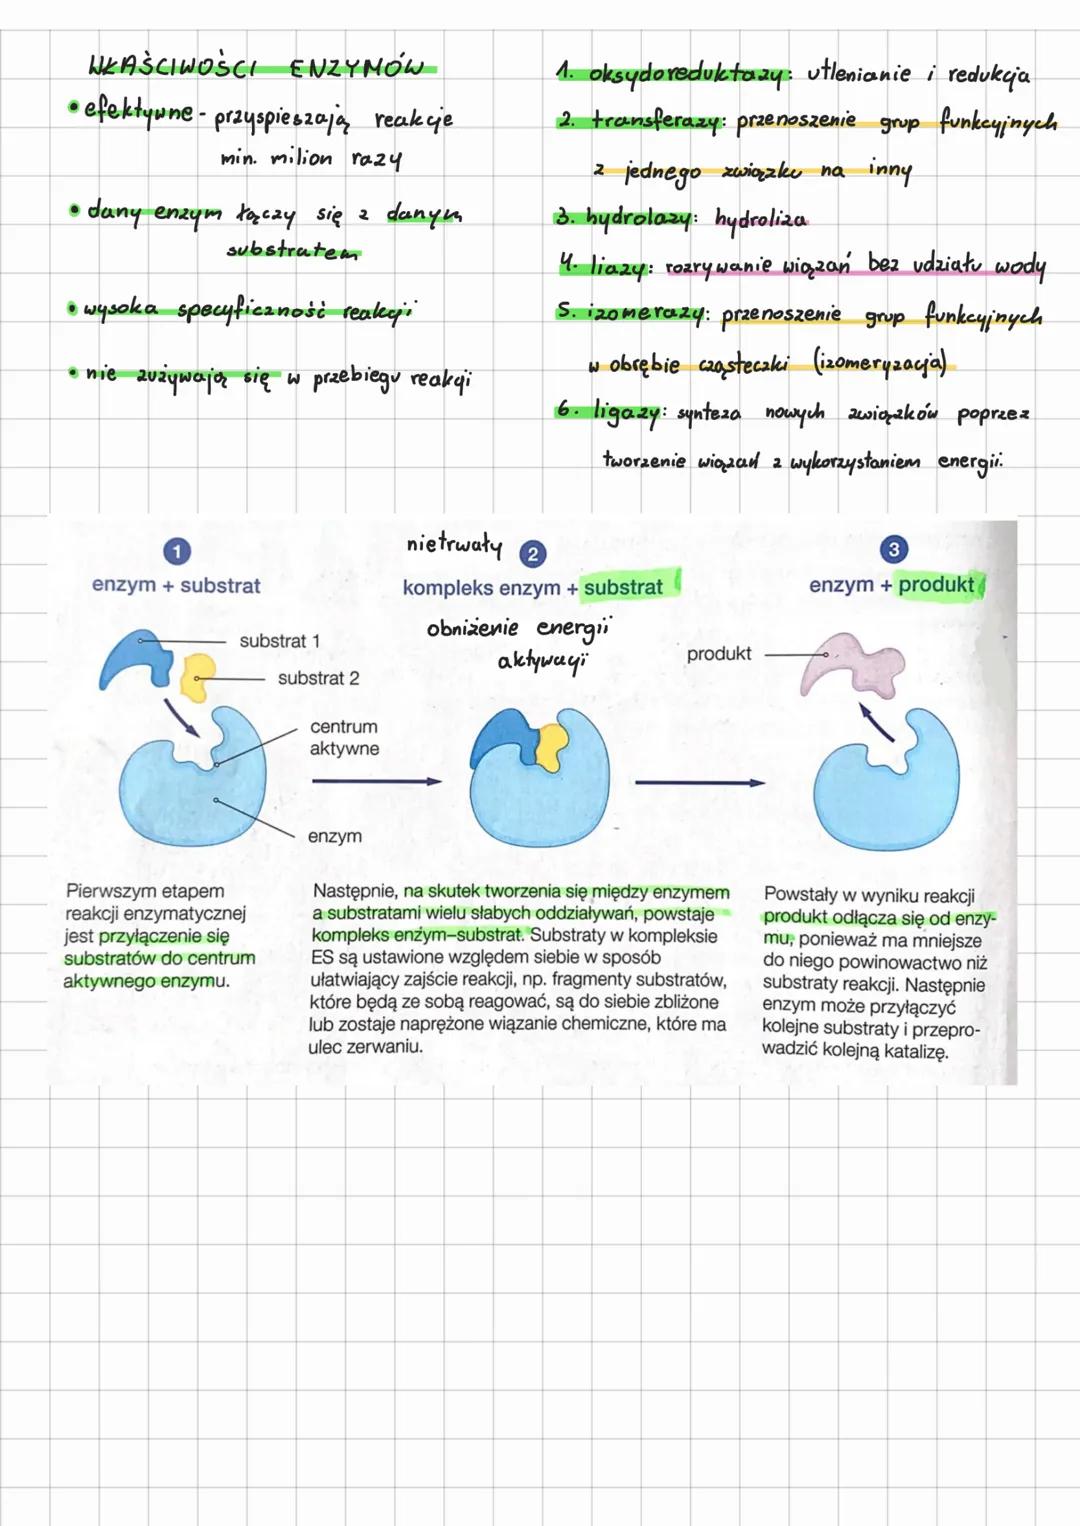 WŁAŚCIWOŚCI ENZYMÓW
• efektywne - przyspieszają reakcje
min. milion razy
• dany enzym łączy się z danym
substratem
• wysoka specyficzność reakcji
• nie zużywają się w przebiegu reakcji
1. oksydoreduktazy: utlenianie i redukcja
2. transferazy: przenoszenie grup funkcyjnych
z jednego związku na inny
3. hydrolazy: hydroliza
4. liazy: rozrywanie wiązań bez udziału wody
5. izomerazy: przenoszenie grup funkcyjnych
w obrębie cząsteczki (izomeryzacja)
6. ligazy: synteza nowych związków poprzez
tworzenie wiązań z wykorzystaniem energii.
1
enzym + substrat
substrat 1
substrat 2
centrum
aktywne
enzym
Pierwszym etapem
reakcji enzymatycznej
jest przyłączenie się
substratów do centrum
aktywnego enzymu.
nietrwały 2
kompleks enzym + substrat
obniżenie energii
aktywacji
Następnie, na skutek tworzenia się między enzymem
a substratami wielu słabych oddziaływań, powstaje
kompleks enzym–substrat. Substraty w kompleksie
ES są ustawione względem siebie w sposób
ułatwiający zajście reakcji, np. fragmenty substratów,
które będą ze sobą reagować, są do siebie zbliżone
lub zostaje naprężone wiązanie chemiczne, które ma
ulec zerwaniu.
3
enzym + produkt
produkt
Powstały w wyniku reakcji
produkt odłącza się od enzy-
mu, ponieważ ma mniejsze
do niego powinowactwo niż
substraty reakcji. Następnie
enzym może przyłączyć
kolejne substraty i przepro-
wadzić kolejną katalizę.